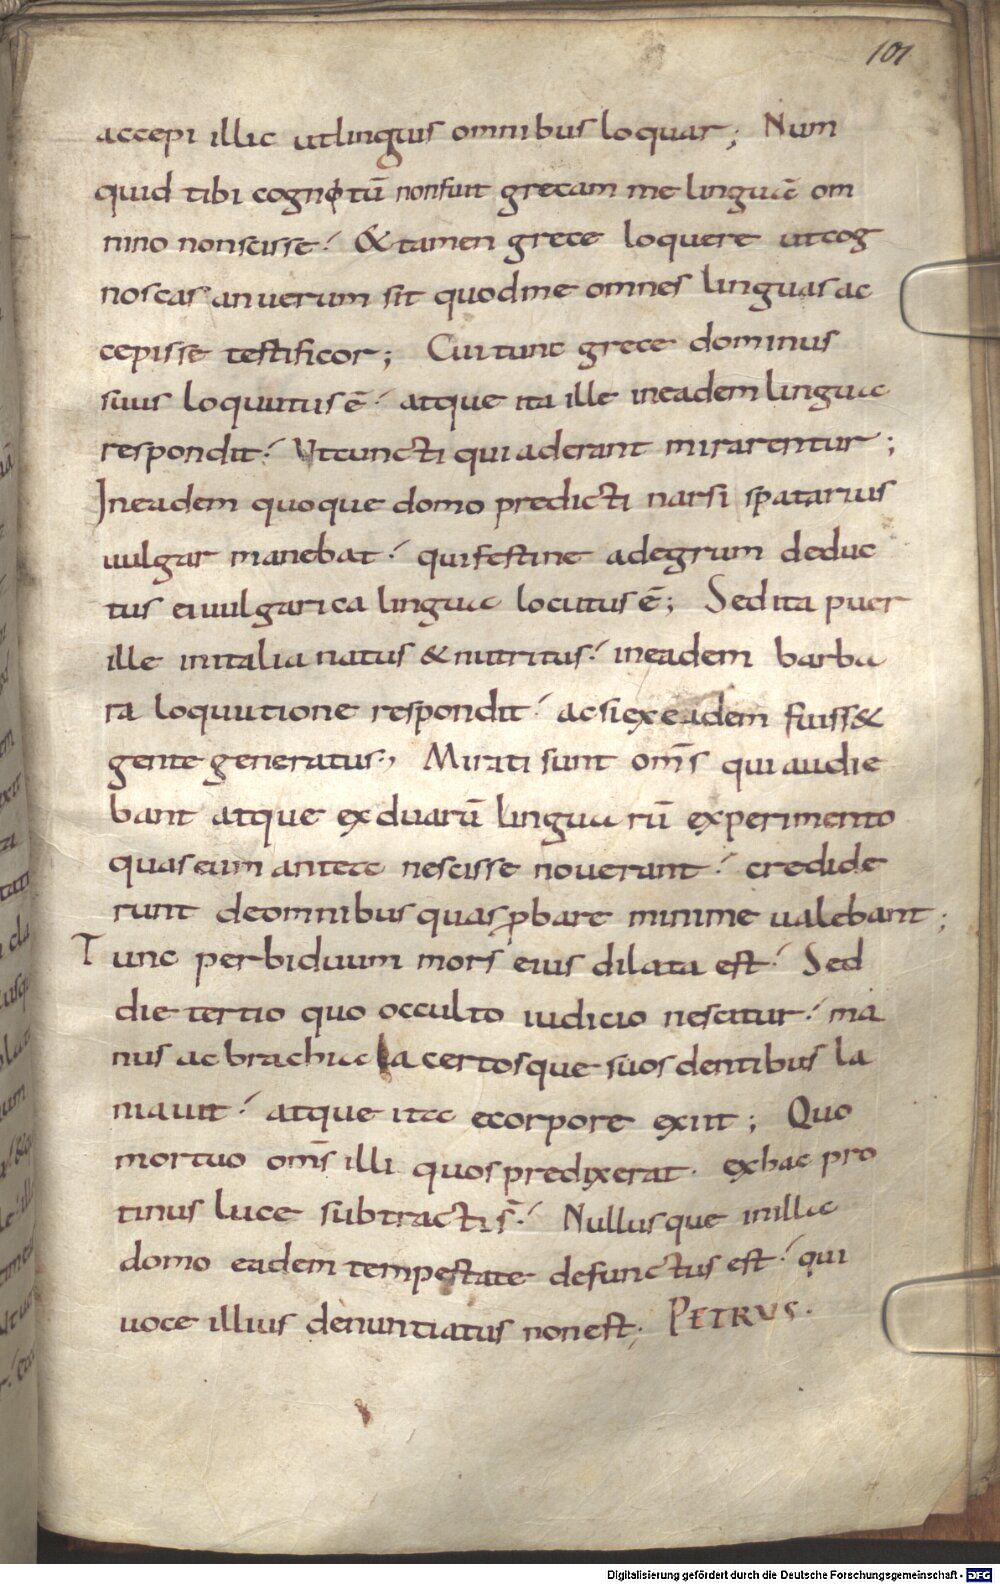 101
accepi illic utlinguis omnibus loquar; Num
quid tibi cognotū nonfuit grecam me linguā om
nino nonscisse? & tamen grece loquere utcog
noscas anuerum sit quodme omnes linguas ac
cepisse testificor; Cui tunc grece dominus
suus loquutus ē. atque ita ille ineadem lingua
respondit. Utcuncti qui aderant mirarentur;
Ineadem quoque domo predicti narsi spatarius
uulgar manebat. quifestine adegrum deduc
tus ei uulgarica lingua locutus ē; Sed ita puer
ille initalia natus & nutritus. ineadem barba
ra loquutione respondit. acsi ex eadem fuiss&
gente generatus; Mirati sunt om̄s qui audie
bant atque ex duarū linguarū experimento
quas eum antea nescisse nouerant. credide
runt deomnibus quas ꝓbare minime ualebant;
Tunc perbiduum mors eius dilata est. Sed
die tertio quo occulto iudicio nescitur. ma
nus ac brachia lacertosque suos dentibus la
niauit. atque ita ecorpore exiit; Quo
mortuo om̄s illi quos predixerat. exhac pro
tinus luce subtracti s̄. Nullusque inilla
domo eadem tempestate defunctus est. qui
uoce illius denuntiatus nonest; PETRUS.
Digitalisierung gefördert durch die Deutsche Forschungsgemeinschaft - DFG